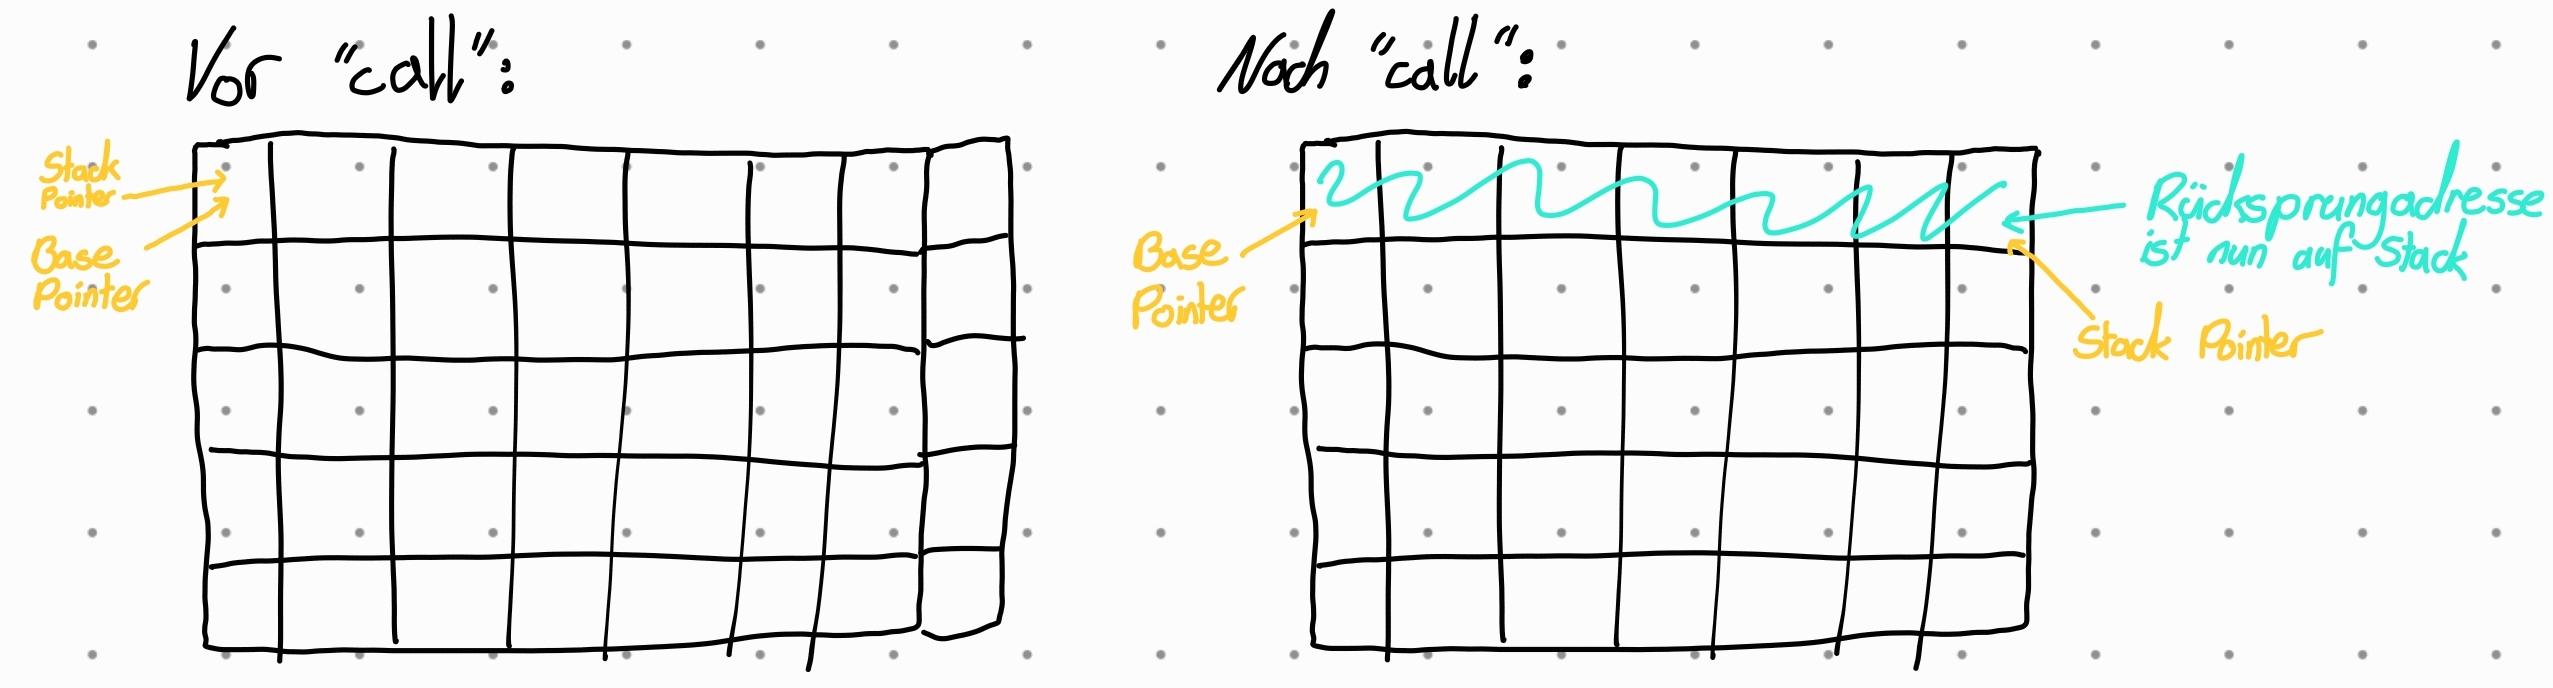 Vor "call":
Stack
Pointer
Base
Pointer
Nach "call":
Base
Pointer
Rücksprungadresse
ist nun auf Stack
Stack Pointer